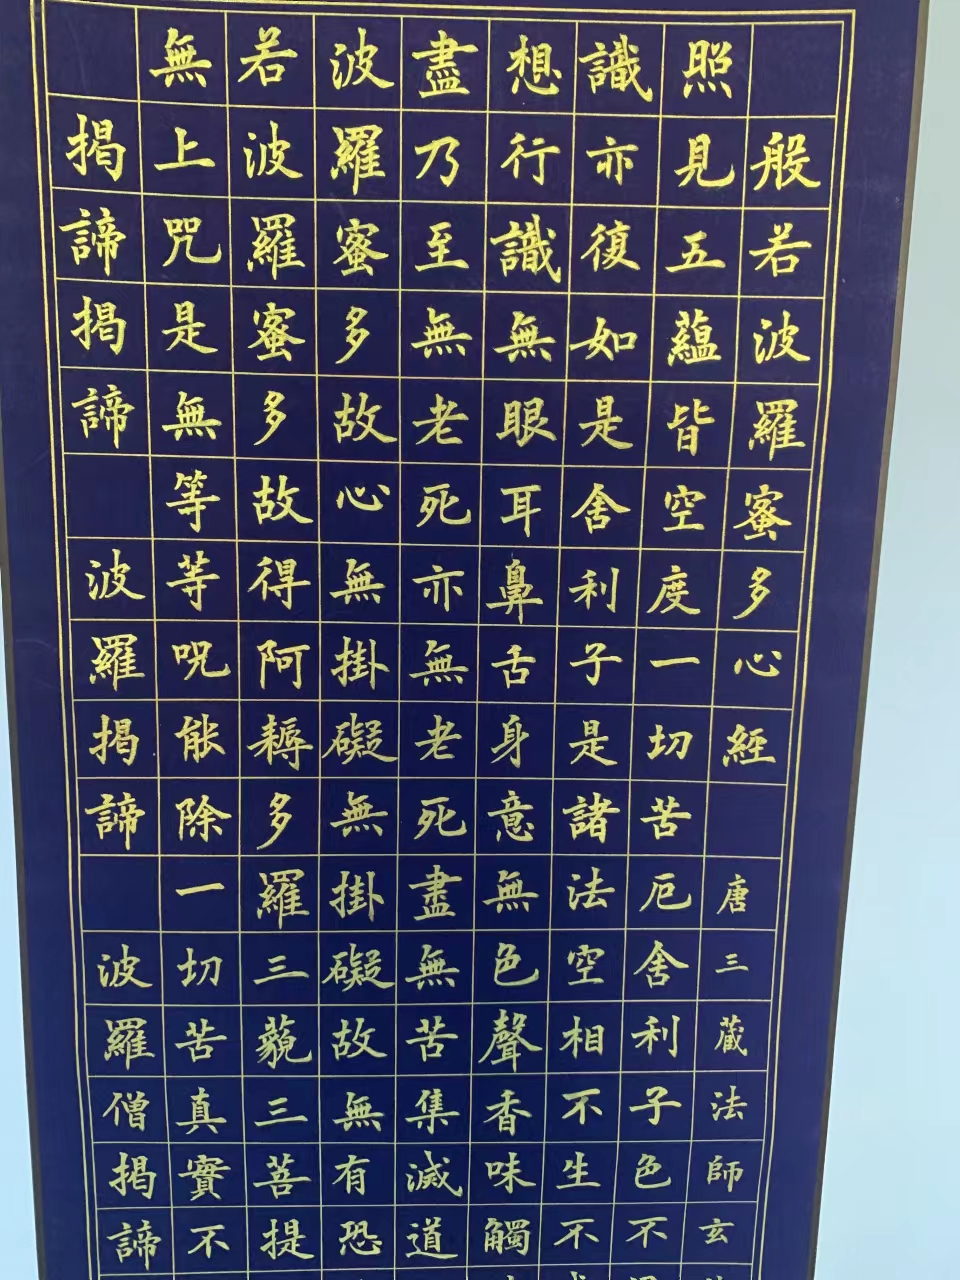 般若波羅蜜多心經 唐三藏法師玄
照見五蘊皆空度一切苦厄舍利子色不
識亦復如是舍利子是諸法空相不生不
想行識無眼耳鼻舌身意無色聲香味觸
盡乃至無老死亦無老死盡無苦集滅道
波羅蜜多故心無掛礙無掛礙故無有恐
若波羅蜜多故得阿耨多羅三藐三菩提
無上咒是無等等呪能除一切苦真實不
揭諦揭諦 波羅揭諦 波羅僧揭諦